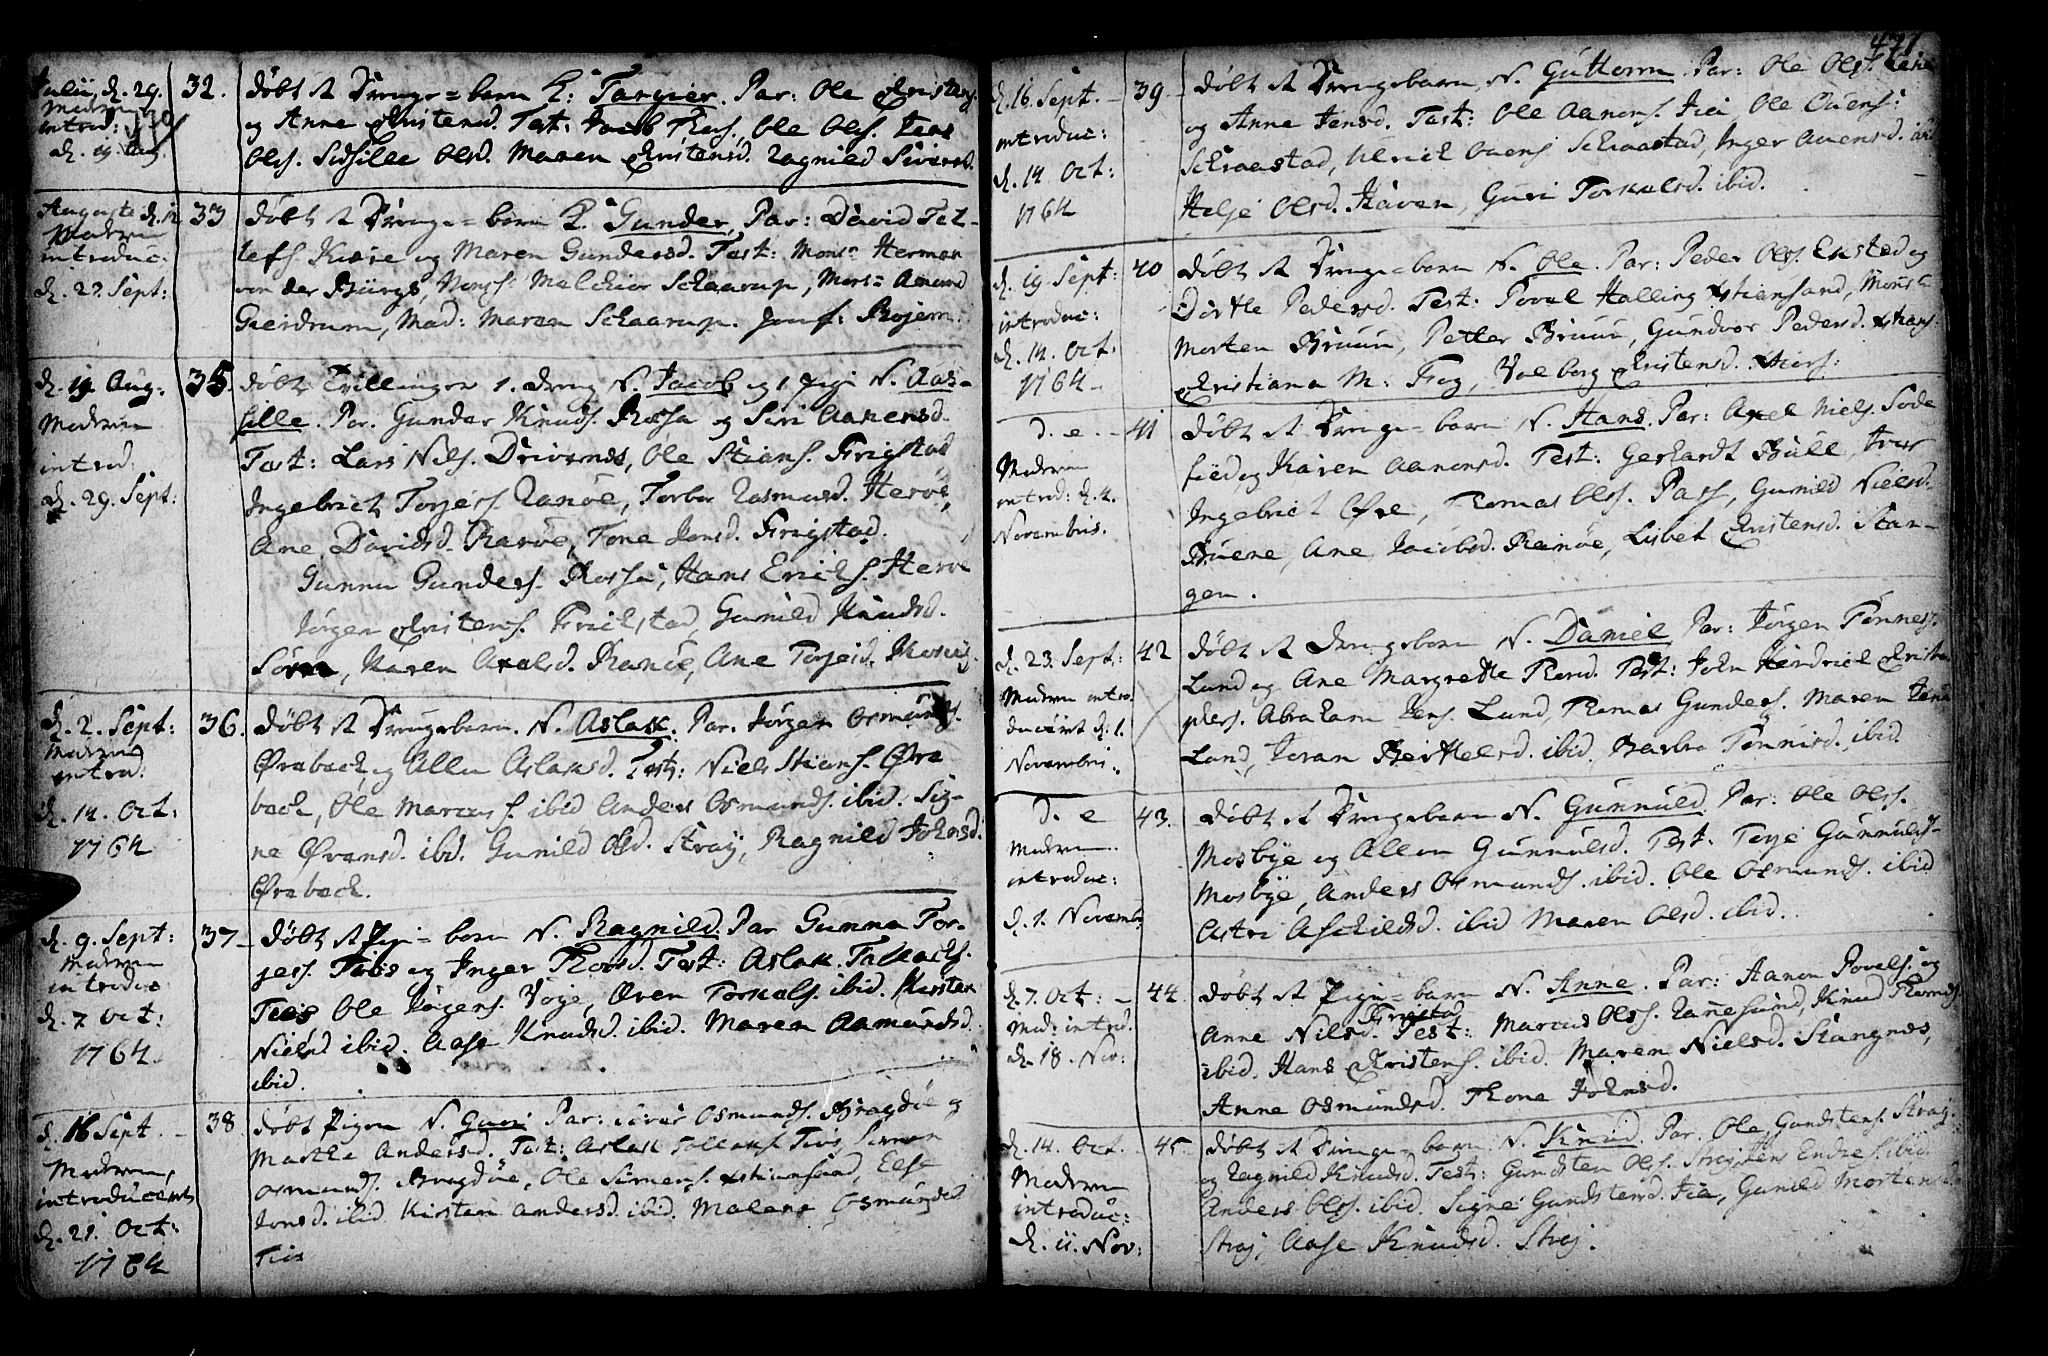 Julii, d. 29.
Madren
introd:
d. 19. Aug.
32. døbt et Drenge=barn N: Targier. Par: Ole Christens.
og Anne Christensd. Test: Jacob Thors. Ole Ols. Jens
Ols. Sidsille Olsd. Maren Christensd. Ragnild Siversd.
Auguste d. 12
Madren
introduc:
d. 23. Sept:
33 døbt et Drenge=barn N. Gunder, Par: David Tel-
lefs Kiære og Maren Gundersd. Test: Monsr Herman
von der Büirgs, Monsr: Melchior Schaarup, Monsr Amund
Geirdrum, Mad: Maren Schaarup. Jomf: Bojem:
d. 19. Aug:
Madren
introd:
d. 29. Sept:
35. døbt Tvillinger 1. dreng N. Jacob og 1 pige N. Aas-
sille. Par. Gunder Knuds. Rossa og Siri Aanensd.
Test: Lars Nils. Drivenes, Ole Stians. Frigstad
Ingebrict Torjers. Ranöe, Torbor Rasmusd. Heröe,
Ane Davidsd. Ranöe, Tone Jonsd. Frigstad.
Gunnu Gunders. Rossa, Hans Erichs. Heröe
Jørgen Christens. Frichstad, Gunild Knudsd.
Maren Axelsd. Ranöe, Ane Torjeid.
d. 2. Sept:
Madren
introd.
d. 14. Oct:
1764
36. Døbt et Drengebarn. N. Aslak. Par. Jørgen Osmunds.
Øreback og Allu Aslaksd. Test: Niels Stians. Øre
back, Ole Marcus s. ibid Anders Osmunds. ibid. Sig-
ne Ørensd. ibid. Gunild Olsd. Stray, Ragnild Johnsd.
Øreback.
d. 9. Sept:
Madren
introduc
d. 7 Oct:
1764.
37 døbt et Pige=barn N. Ragnild. Par Gunna Tor-
jess. Tveis og Inger Thorsd. Test: Aslak Tallachs.
Tveis Ole Jørgens. Voje, Øven Torkels. ibid. Kirsten
Nielsd ibid. Aase Knudsd. ibid. Maren Aamundsd.
ibid.
d. 16 Sept
Madren
introduceret
d. 21. Oct:
1764
38 døbt Pigen N. Guri Par: Siver Osmunds. Bragdöe og
Marthe Andersd. Test: Aslak Tallaks. Tveis Simon
Osmunds. Bragdöe, Ole Simens. Xstiansand, Else
Jonsd. ibid Kirsten Andersd. ibid. Malene Osmundsd
Tveis
471
d. 16. Sept.
introduc:
d. 14 Oct:
1764
39 døbt et Drengebarn N. Guttorm. Par: Ole Ols.
og Anne Jensd. Test: Ole Aanens. Ole Ouens:
Schraastad, Ulrich Ouens Schraastad, Inger Auensd. ibid
Helje Olsd. Haven, Guri Torkelsd. ibid.
d. 19 Sept:
introduc:
d. 14. Oct.
1764.
40 døbt et Drenge=barn N. Ole. Par: Peder Ols. Eksted og
Dorthe Pedersd. Test. Povel Halling Xstiansand, Monsr
Morten Bruun, Petter Bruun, Gundvor Pedersd. Xstians:
Christiana M: Frog, Volborg Christensd. Xtians:
d. e.
Madren
introd: d. 4.
Novembris.
41 døbt et Drenge=barn N. Hans. Par: Axel Niels. Søde
fied og Karen Aanensd. Test: Gerhardt Bülle, Iver
Ingebrict Øre, Thomas Ols. Pass, Gunild Nielsd.
Buene, Ane Jacobsd. Ranöe, Lisbet Christensd. Stan-
gen.
d. 23. Sept:
Madren intro
duciret d. 1.
Novembris.
42 døbt et Drengebarn N. Daniel Par: Jørgen Tønness.
Lund og Ane Margrethe Thorsd. Test: John Hendrich Christo
phers. Abraham Jens. Lund, Thomas Gunders. Maren Jens
Lund, Joran Berthelsd. ibid, Barbro Tønnisd. ibid.
d. e
Madren
introduc:
d. 1. Novemb:
43. døbt et Drengebarn N. Gunnuld Par: Ole Ols.
Mosbye og Allou Gunnulsd. Test: Terje Gunnuls.
Mosbye, Anders Osmunds. ibid. Ole Osmunds. ibid
Astri Aschildsd. ibid Maren Olsd. ibid.
d. 7. Oct:
Mad: introd.
d. 18. Nov:
44. døbt et Pige=barn N. Anne. Par: Aanen Povels. og
Anne Nilsd. Test: Marcus Ols. Ranesund, Knud Thomes.
ibid. Hans Christens. ibid. Maren Nielsd. Stangnes,
Anne Osmundsd. Thone Johnsd.
d. 14. Oct.
Madren
introduc:
d. 11. Nov:
45. døbt et Drenge=barn N. Knud. Par. Ole Gundstens. Straj.
og Ragnild Knudsd. Test: Gundsten Ols. Straj, Jens Endres. ibid.
Anders Ols. ibid. Signe Gundstensd. Gunild Mortensd.
Straj, Aase Knudsd. Straj.